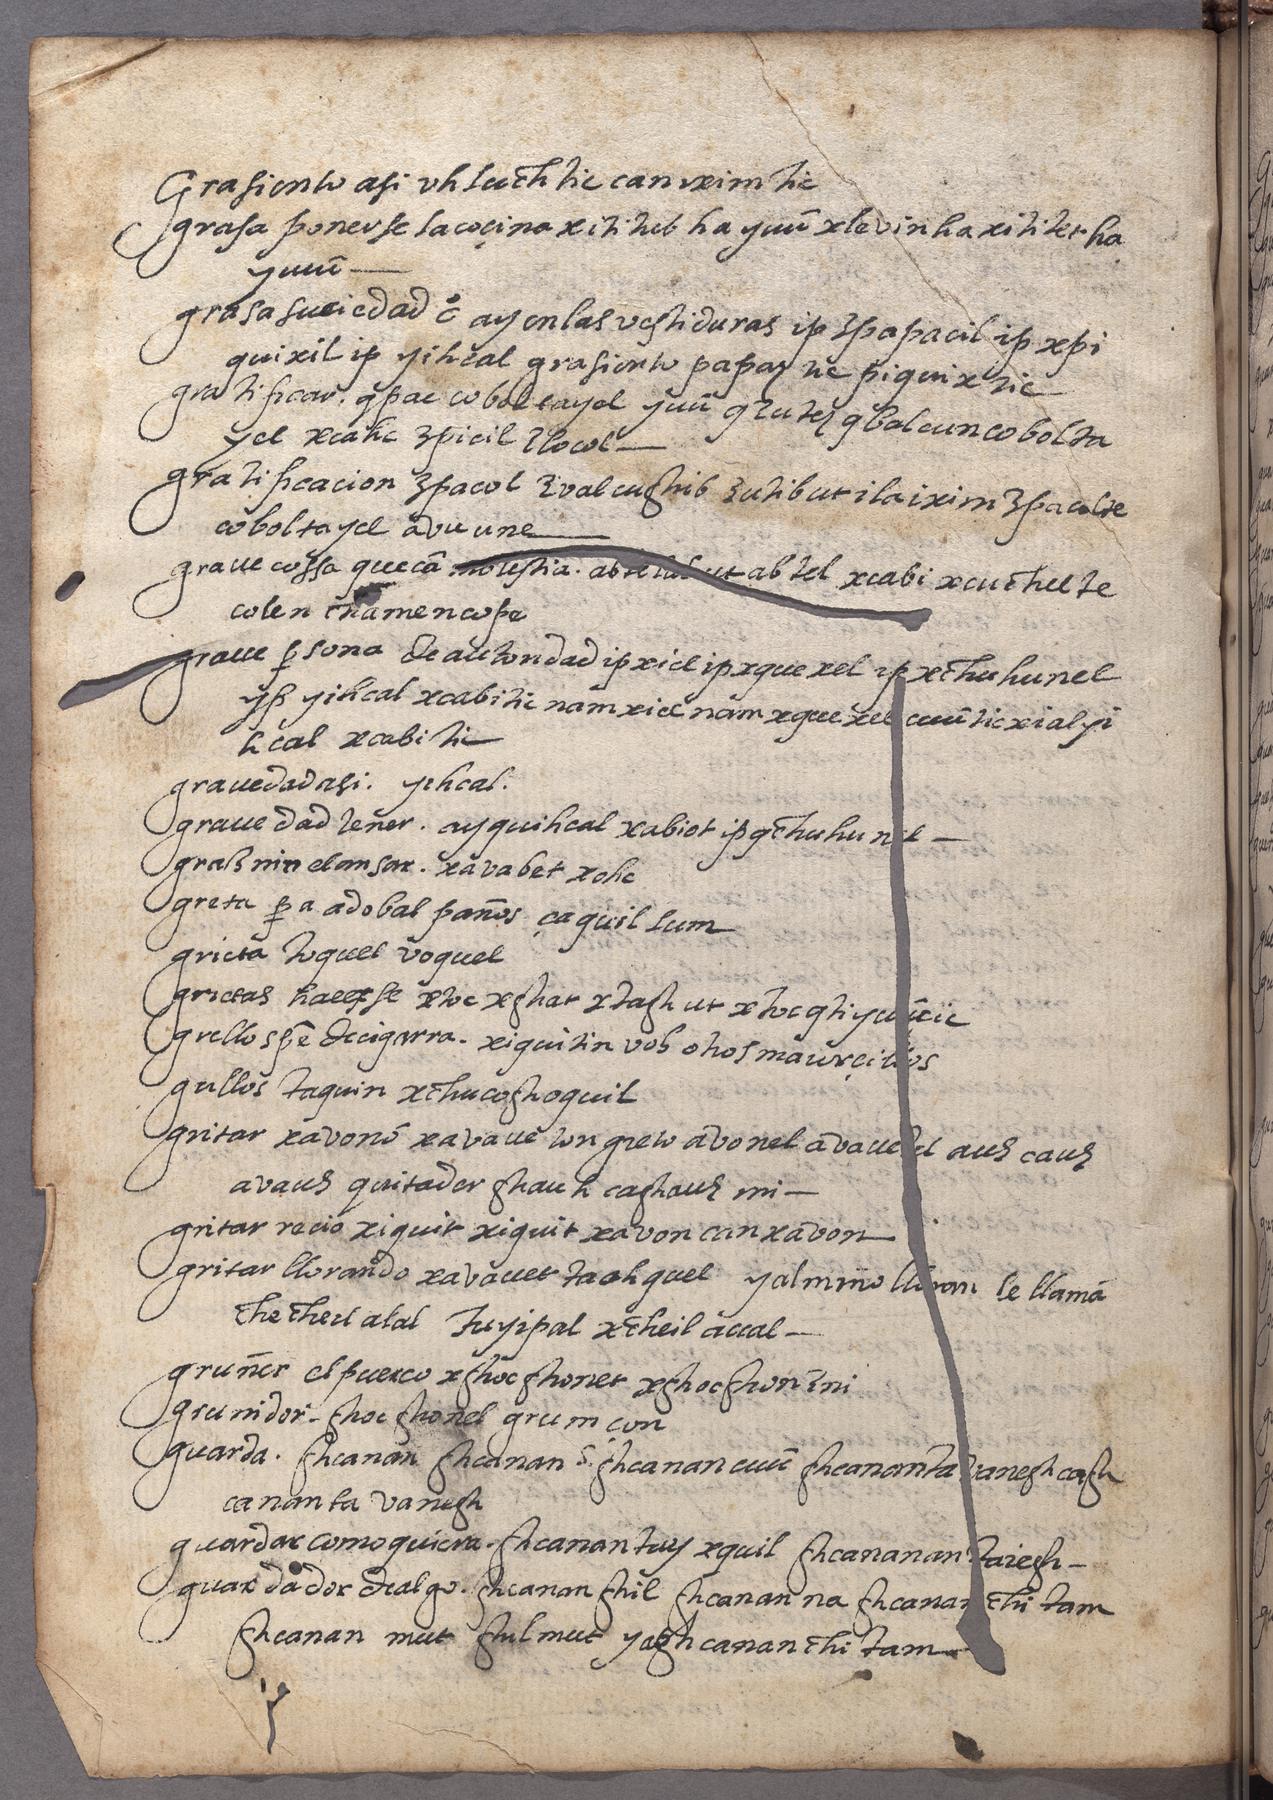 Grasiento asi vhtuch tic canixim tic
grasa ponerse la cocina xititet ha yuũ xlevinha xititet ha
yuuũ —
grasa suciedad q̃ ay en las vestiduras ip ʒpapacil ip xpi
quixil ip yihcal grasiento papaʒ tic piquix tic
gratificar. qpac cobol tayel yuũ qʒuteʒ qbalcun cobolta
yel xcahc ʒpicil ʒlocol —
gratificacion ʒpacol ʒvalcughib ʒutibut ilaixim ʒpacolte
coboltayel avuune —
graue cossa que cã molestia. abtel ut abtel xcabi xcuchel te
colen chamencope
graue psona de autoridad ip xiel ip xque xel ip xchuhunel
yp yihcal xcabitic nam xiel nam xque xel cuuũ tic xial yi
hcal xcabi tic
grauedad asi. yihcal.
grauedad tener. ay quihcal xabiot ip qchuhunel —
grasnir el ansar. xavabet xohc
greta pa adobal paños çaquil lum
grieta toquel voquel
grietas haerse xtoc xghat xtagh ut xtoc qtiyuũcic
grello spẽ de cigarra. xiquitin vob otros maurcillos
gullos taquin xchucoghoquil
gritar xavonõ xavaue ton greto avonel avauehel auʒ cauʒ
avauʒ quitader ghauh caghauʒ mi —
gritar recio xiquit xiquit xavon canxavon —
gritar llorando xavauet taohquel yal niño lloran le llamã
che chel alal tuyipal xcheil aval —
gruñer el puerco xghocghonet xghocghon ĩni
grunidor. ghocghonel grumçon
guarda. ghcanan ghcanan s. ghcanan cuuũ ghcanantavanegh cagh
cananta vanegh
guardar como quiera. ghcanantuy xquil ghcananantaiegh —
guardador de algo. ghcanan ghil ghcanan na ghcanan chitam
ghcanan mut ghilmut yaghcanan chitam —